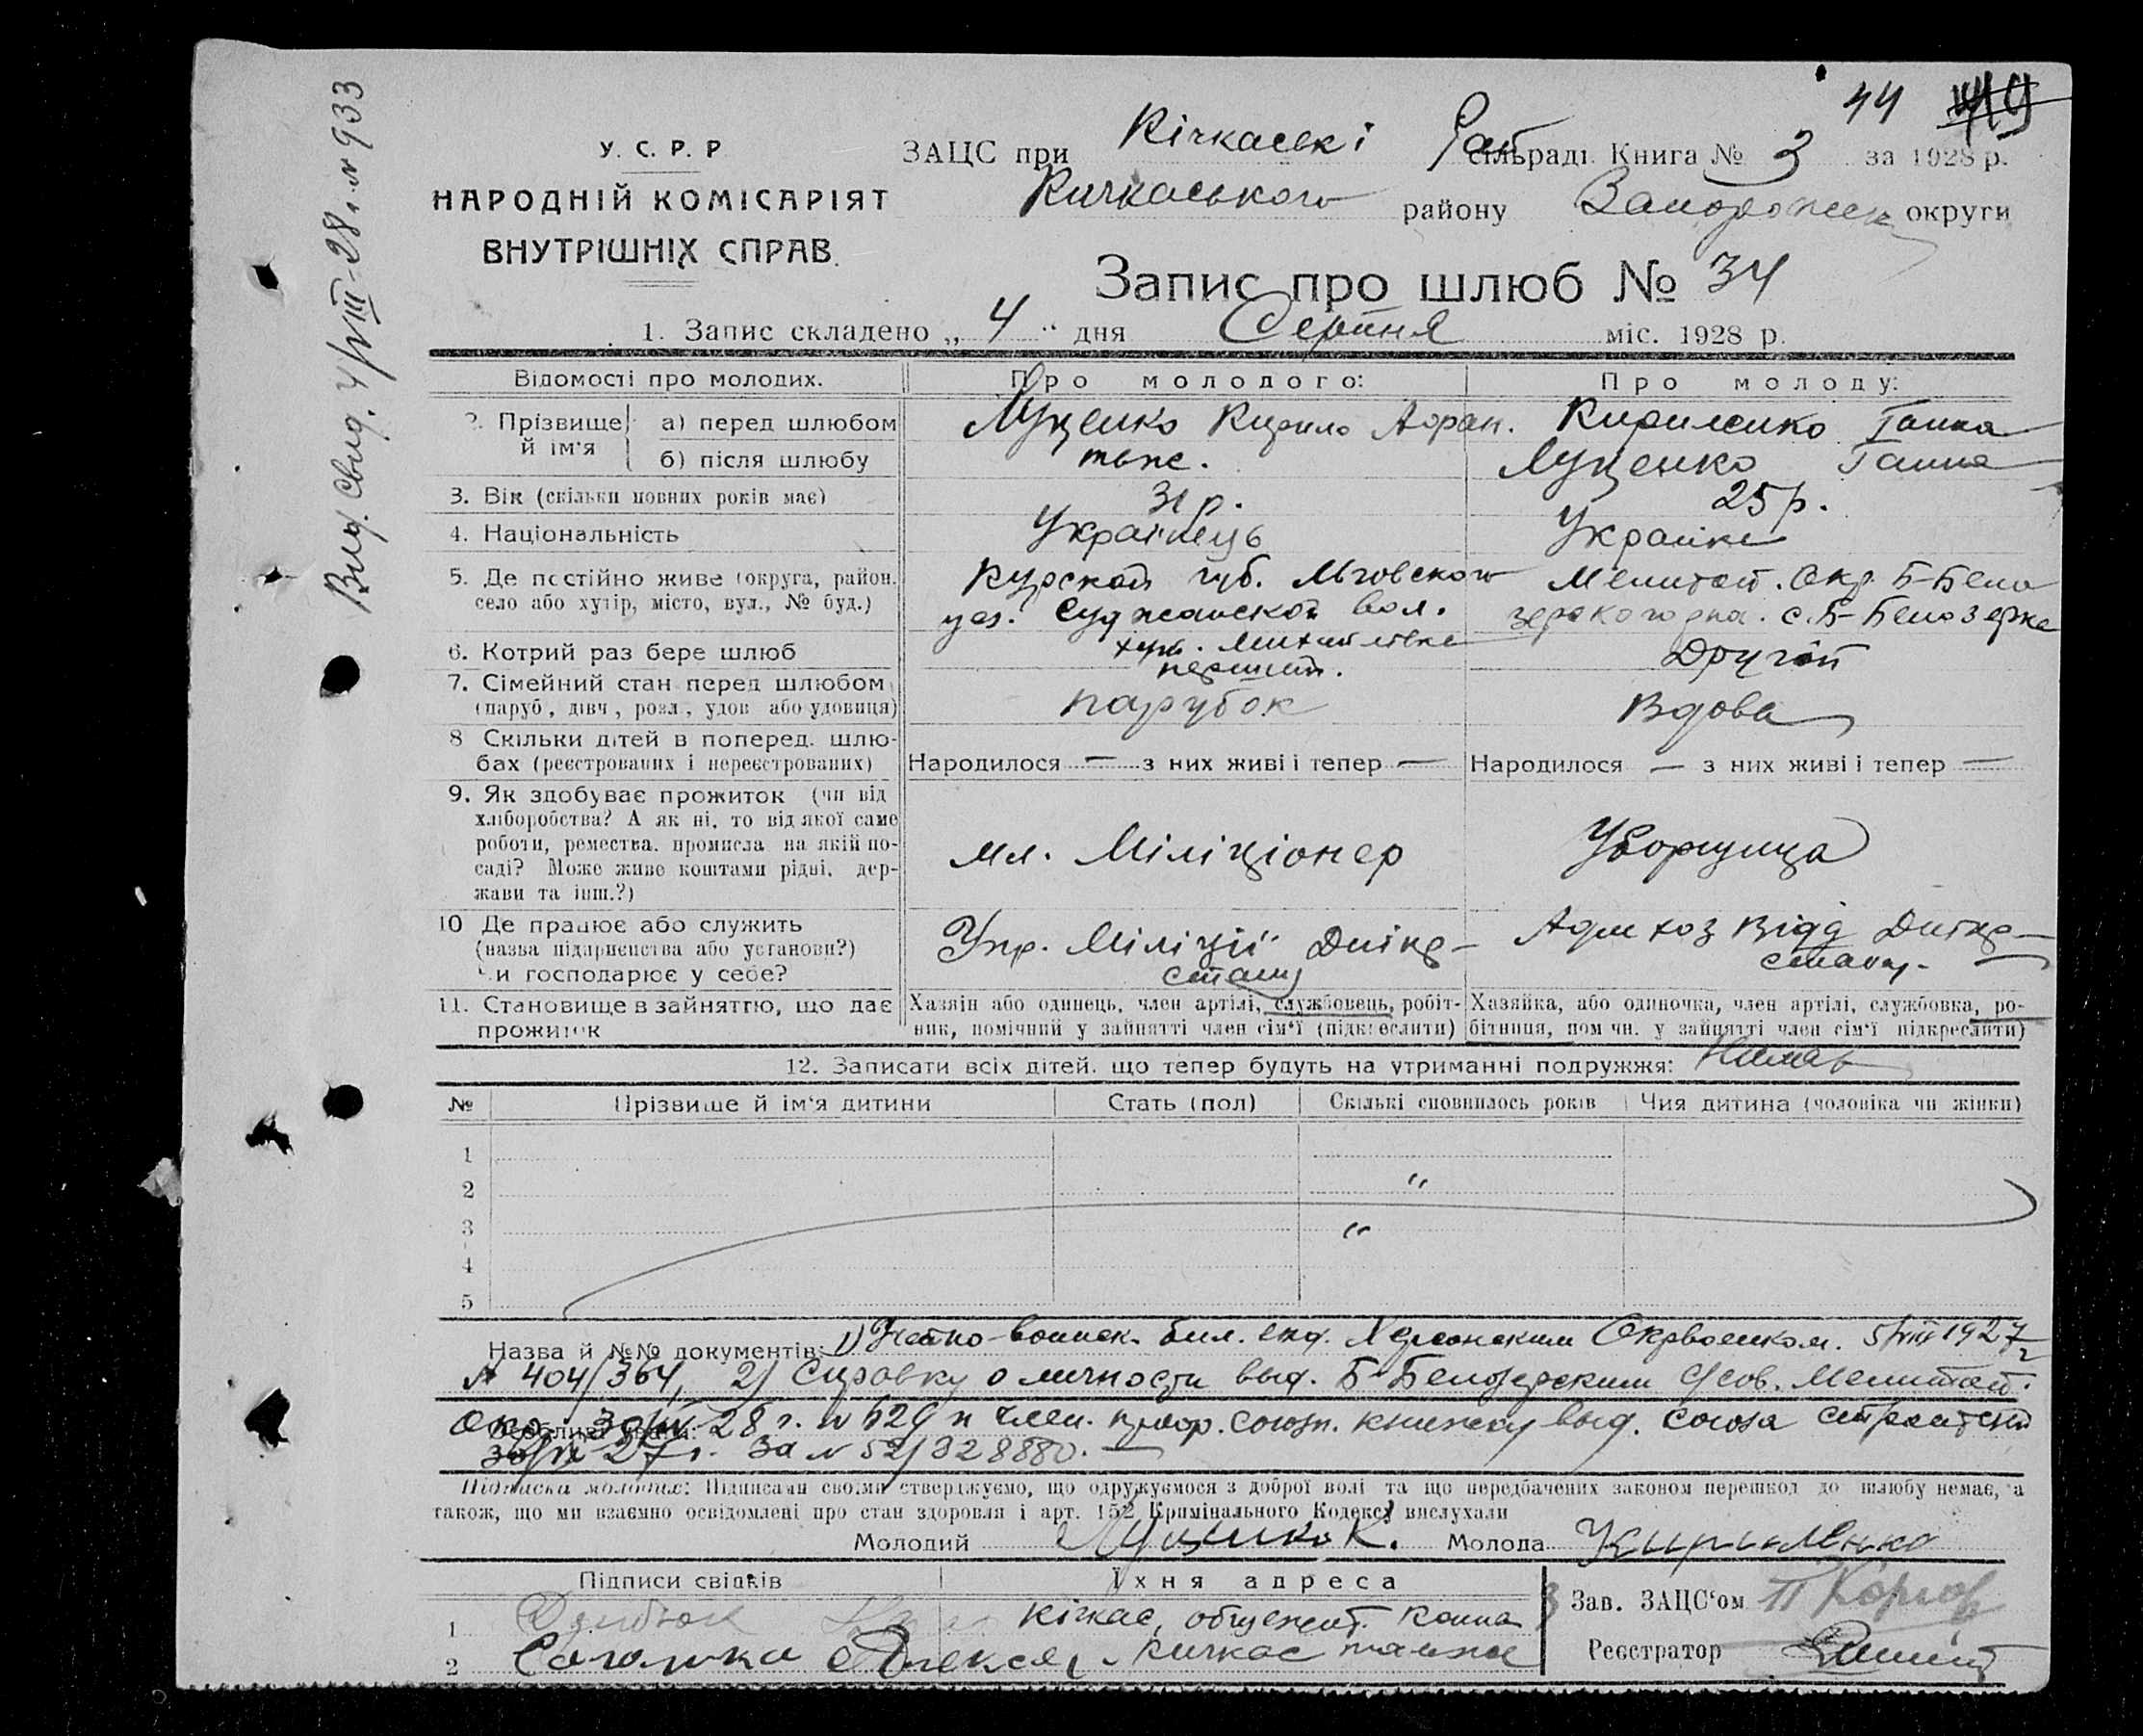 44 119
Вид. Свид. 4/VIII-28 г. № 933
У. С. Р. Р
НАРОДНІЙ КОМІСАРІЯТ
ВНУТРІШНІХ СПРАВ.
ЗАЦС при Кічкаські Сільраді Книга № 3 за 1928 р.
Кичкаського району Запорожск округи
Запис про шлюб № 34
1. Запис складено „ 4 “ дня Серпня міс. 1928 р.
Відомості про молодих. Про молодого: Про молоду:
2. Прізвище й ім'я а) перед шлюбом Луценко Кирило Афран. Кириленко Ганна
б) після шлюбу тьже. Луценко Ганна
3. Вік (скільки повних років має) 31 р. 25 р.
4. Національність Українець Українка
5. Де постійно живе (округа, район. Курской губ. Льговского Мелитоп. Окр. Б-Бело
село або хутір, місто, вул., № буд.) уез. Суджанской вол. зерского рна. с. Б-Белозерка
хут. Михайловка
6. Котрий раз бере шлюб первый. Другой
7. Сімейний стан перед шлюбом парубок Вдова
(паруб, дівч, розл, удов або удовиця)
8 Скільки дітей в поперед. шлю-
бах (реєстрованих і нереєстрованих) Народилося — з них живі і тепер — Народилося — з них живі і тепер —
9. Як здобуває прожиток (чи від
хліборобства? А як ні, то від якої саме
роботи, ремества, промисла на якій по-
саді? Може живе коштами рідні, дер-
жави та інш.?) мл. Міліціонер Уборщица
10 Де працює або служить
(назва підприємства або установи?) Упр. Міліції Дніпр- Адмхоз Відд Дніпр-
чи господарює у себе? стану стану.
11. Становище в зайняттю, що дає Хазяїн або одинець, член артілі, службовець, робіт- Хазяйка, або одиночка, член артілі, службовка, ро-
прожиток ник, помічний у зайнятті член сім'ї (підкреслити) бітниця, помічн. у зайнятті член сім'ї підкреслити)
12. Записати всіх дітей, що тепер будуть на утриманні подружжя: Немає
№ Прізвище й ім'я дитини Стать (пол) Скількі сповнилось років Чия дитина (чоловіка чи жінки)
1
2 "
3 "
4
5
Назва й №№ документів: 1) Учетно-воинск. бил. выд. Херсонским Окрвоенком. 5/VIII 1927 г
№ 404/364, 2) Справку о личности выд. Б-Белозерским С/сов. Мелитоп.
Особливі уваги: окр. 28 г. № 629 и член. проф. союзн. книжку выд. союза строителей
27 г. за № 52/328880. —
Підписка молодих: Підписами своїми стверджуємо, що одружуємося з доброї волі та що передбачених законом перешкод до шлюбу немає, а
також, що ми взаємно освідомлені про стан здоровля і арт. 152 Кримінального Кодексу вислухали
Молодий Луценко К. Молода Кириленко
Підписи свідків Їхня адреса
1 Кічкас, общежит. Зав. ЗАЦС'ом
2 Алексей Кичкас Реєстратор